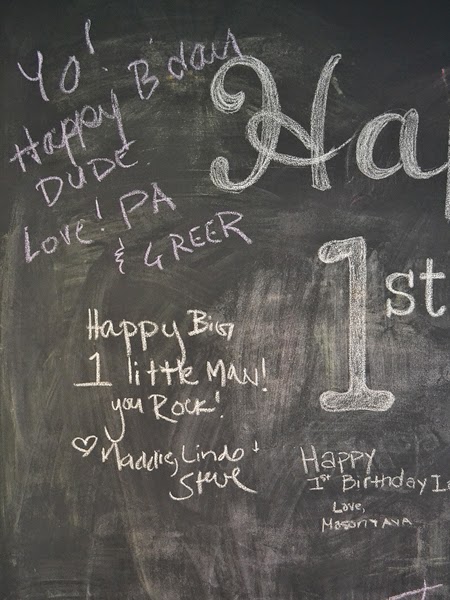 Yo!
Happy B'day
DUDE.
Love! PA
& GREER
Ha
1st
Happy Big
1 little Man!
you Rock!
♡ Maddie, Lindo +
Steve
Happy
1st Birthday
Love,
Mason + Ava